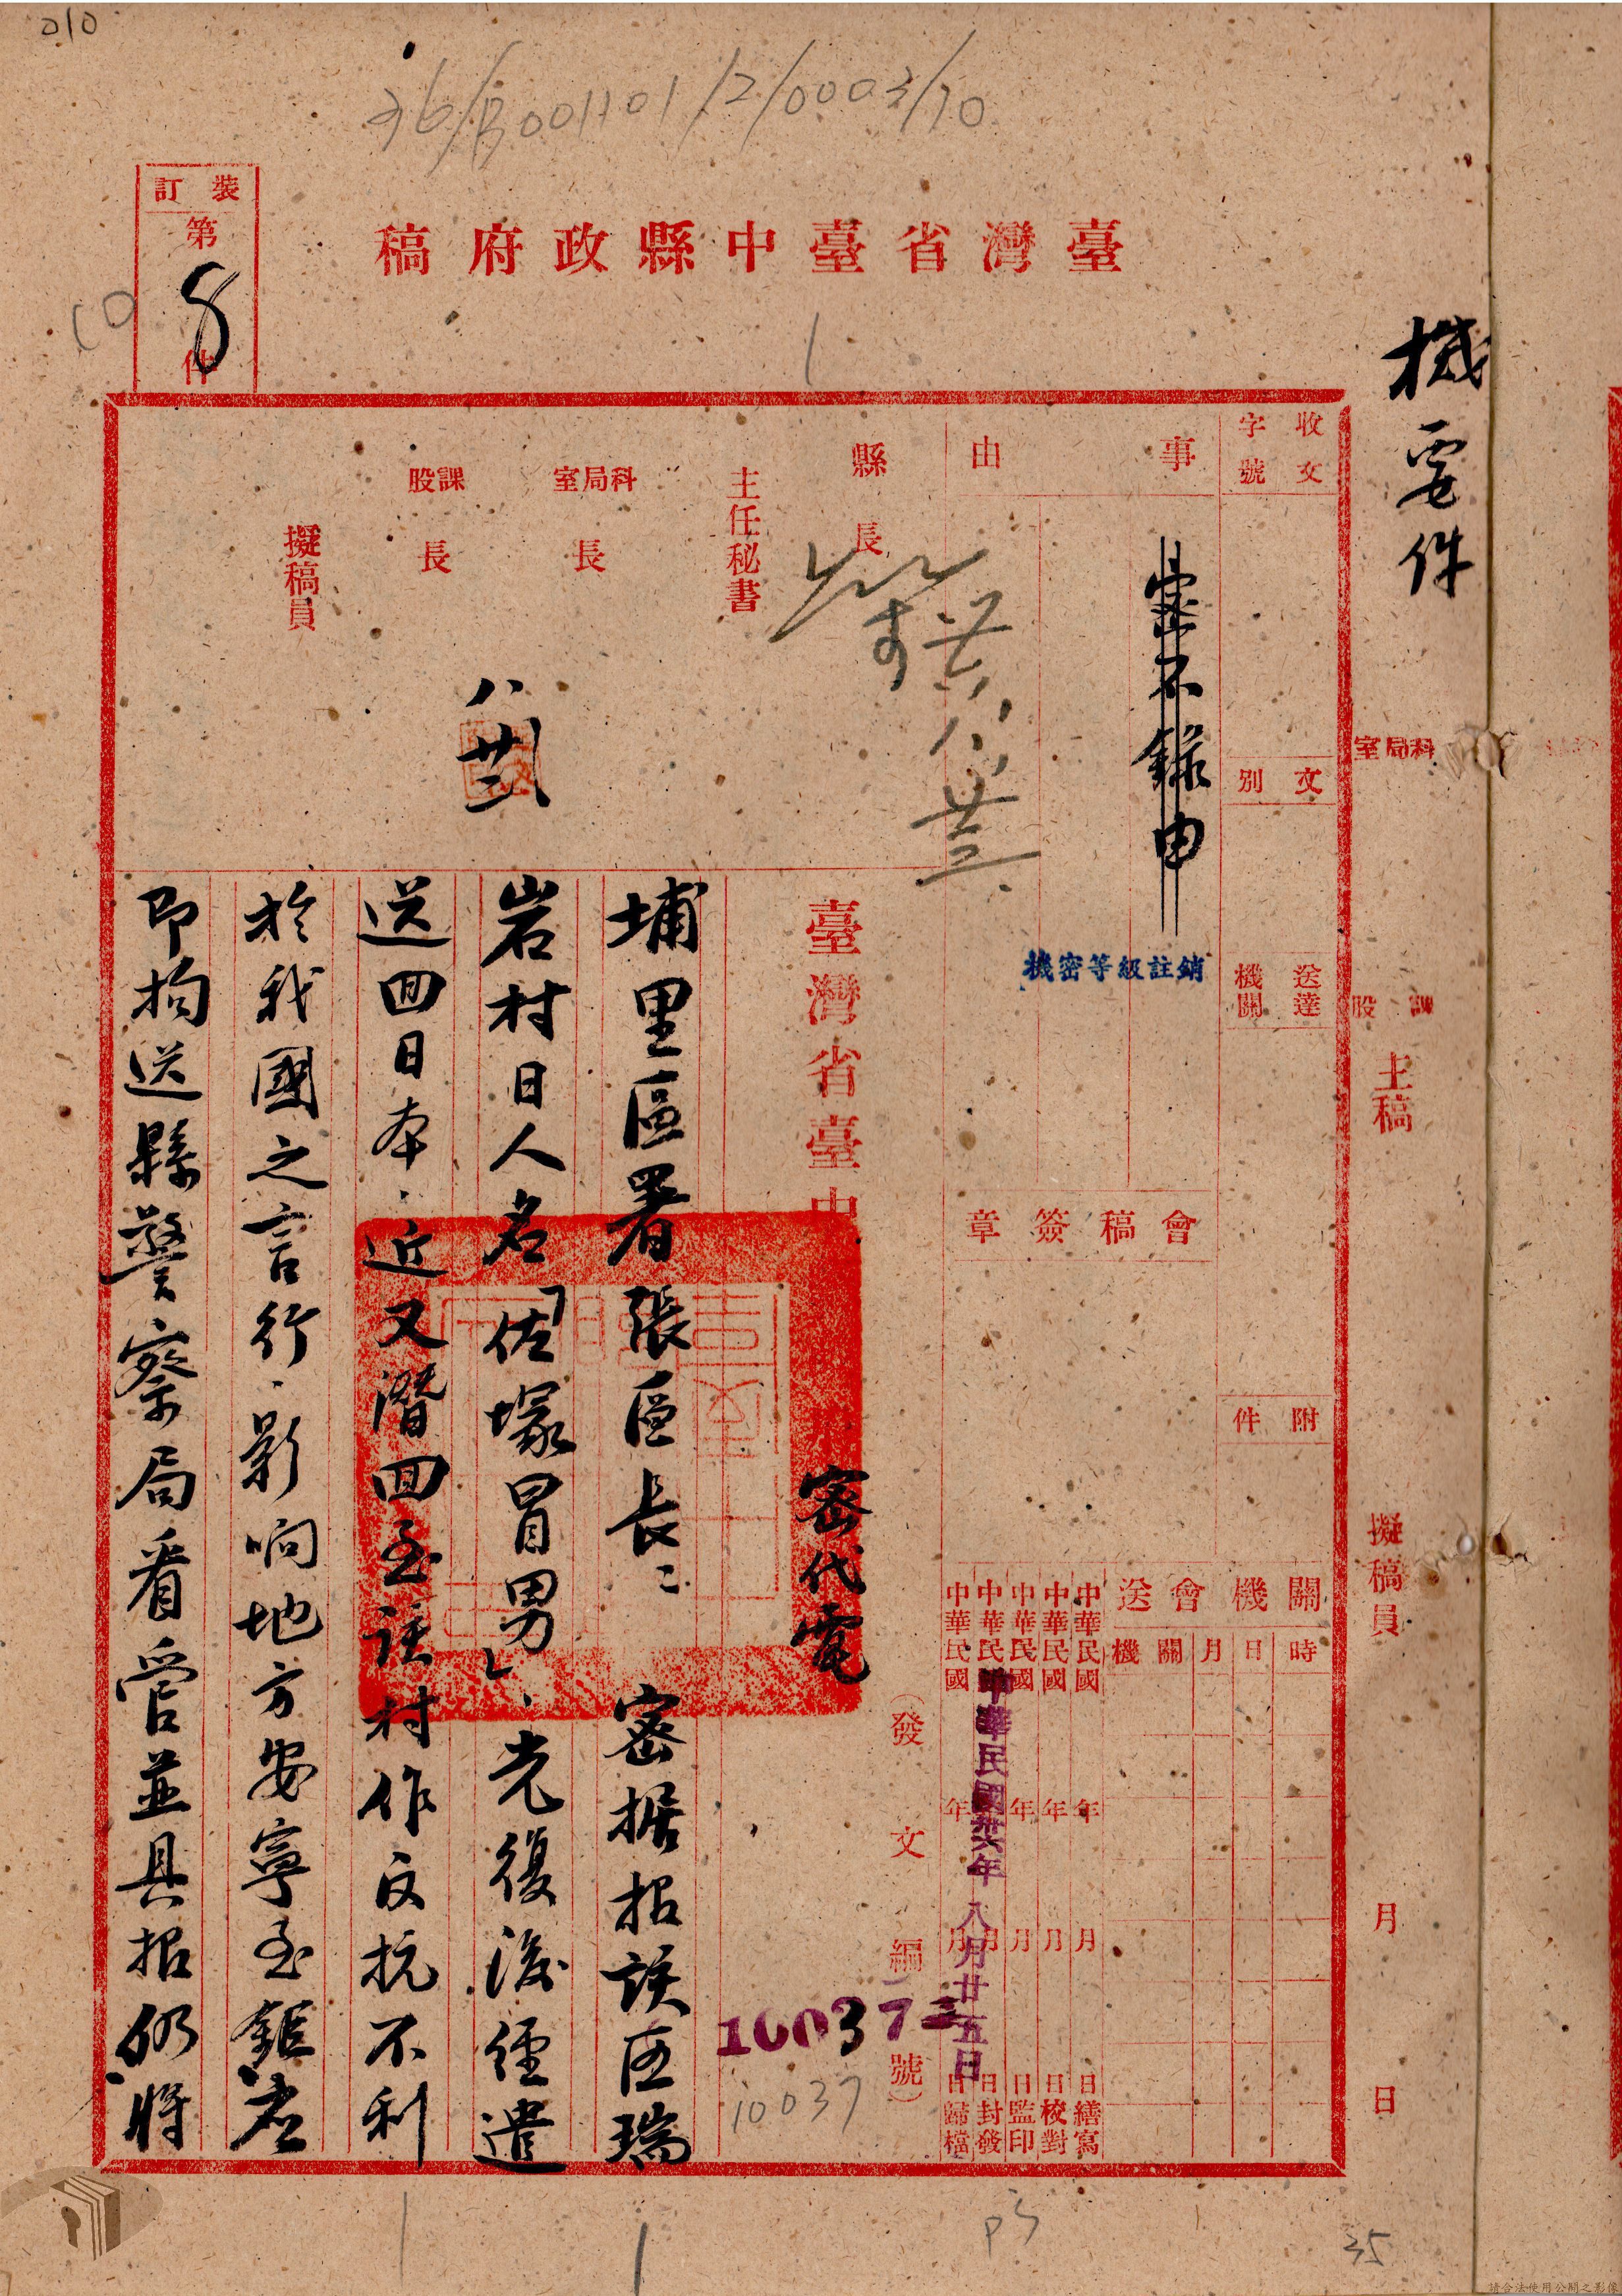 010
36/B001101/2/0003/10
裝訂
第
8
件
10
臺灣省臺中縣政府稿
機要件
收文
字號
文別
送達機關
附件
事由
密不錄由
機密等級註銷
會稿簽章
關機會送
時
日
月
關
機
中華民國 年 月 日繕寫
中華民國 年 月 日校對
中華民國 年 月 日監印
中華民國 年 月 日封發
中華民國 年 月 日歸檔
中華民國卅六年八月廿五日
縣長
主任秘書
科局室長
課股長
擬稿員
科局室
課股
主稿
擬稿員
月
日
臺灣省臺中
密代電
(發文編號)
10037
10037
埔里區署張區長:密据报該區瑞
岩村日人名「佐塚冒男」、光復後經遣
送回日本、近又潛回至該村作反抗不利
於我國之言行、影响地方安寧至鉅、應
即拘送縣警察局看管並具报仍將
P3
35
請合法使用公開之影像